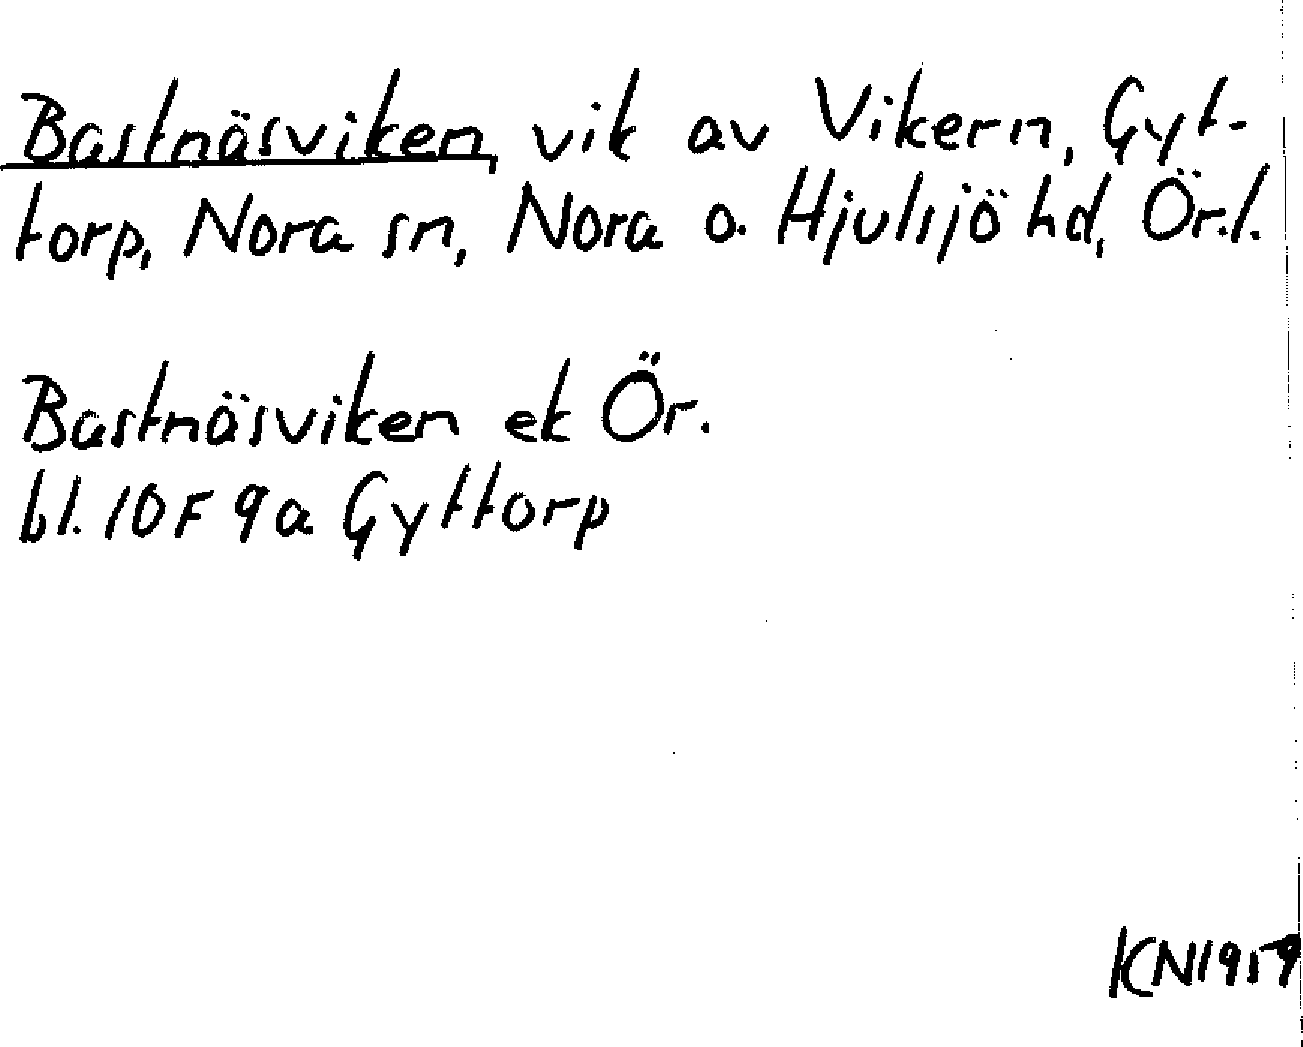 Bastnäsviken, vik av Vikern, Gyt-
torp, Nora sn, Nora o. Hjulsjö hd, Ör.l.
Bastnäsviken ek Ör.
bl. 10F 9a Gyttorp
KN1959